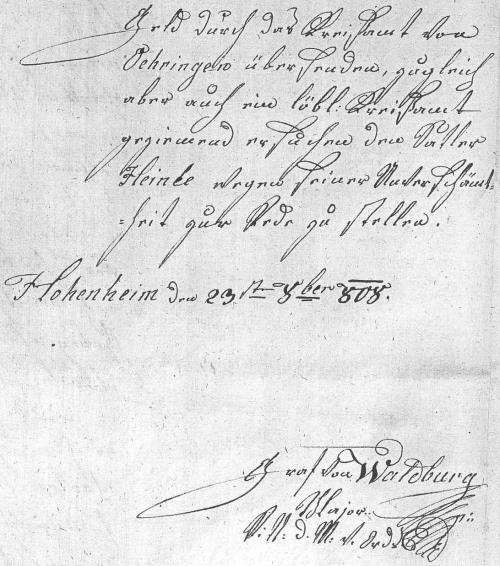 Geld durch das Kreisamt von
Oehringen übersenden, zugleich
aber auch ein löbl: Kreisamt
geziemend ersuchen den Satler
Heinle wegen seiner Unverschämt=
=heit zur Rede zu stellen.
Hohenheim den 23.sten 8ber 808.
Graf von Waldburg
Major
d. M. v. Ord.